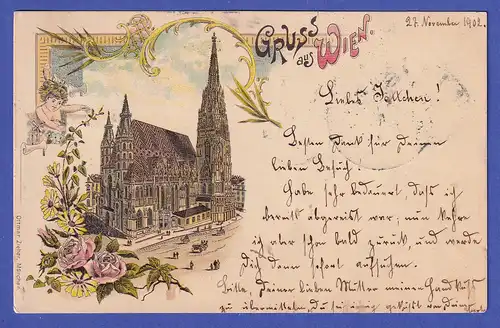 GRUSS
aus WIEN.
27. November 1902.
Liebes Julchen!
Besten Dank für Deinen
lieben Besuch.
Habe sehr bedauert, dass ich
bereits abgereist war; nun kehre
ich aber schon bald zurück, und werde
Dich dann sofort aufsuchen.
Bitte, Deiner lieben Mutter meinen Handkuss
zu übermitteln, du sei innig geküsst von Deiner
Ottmar Zieher, München